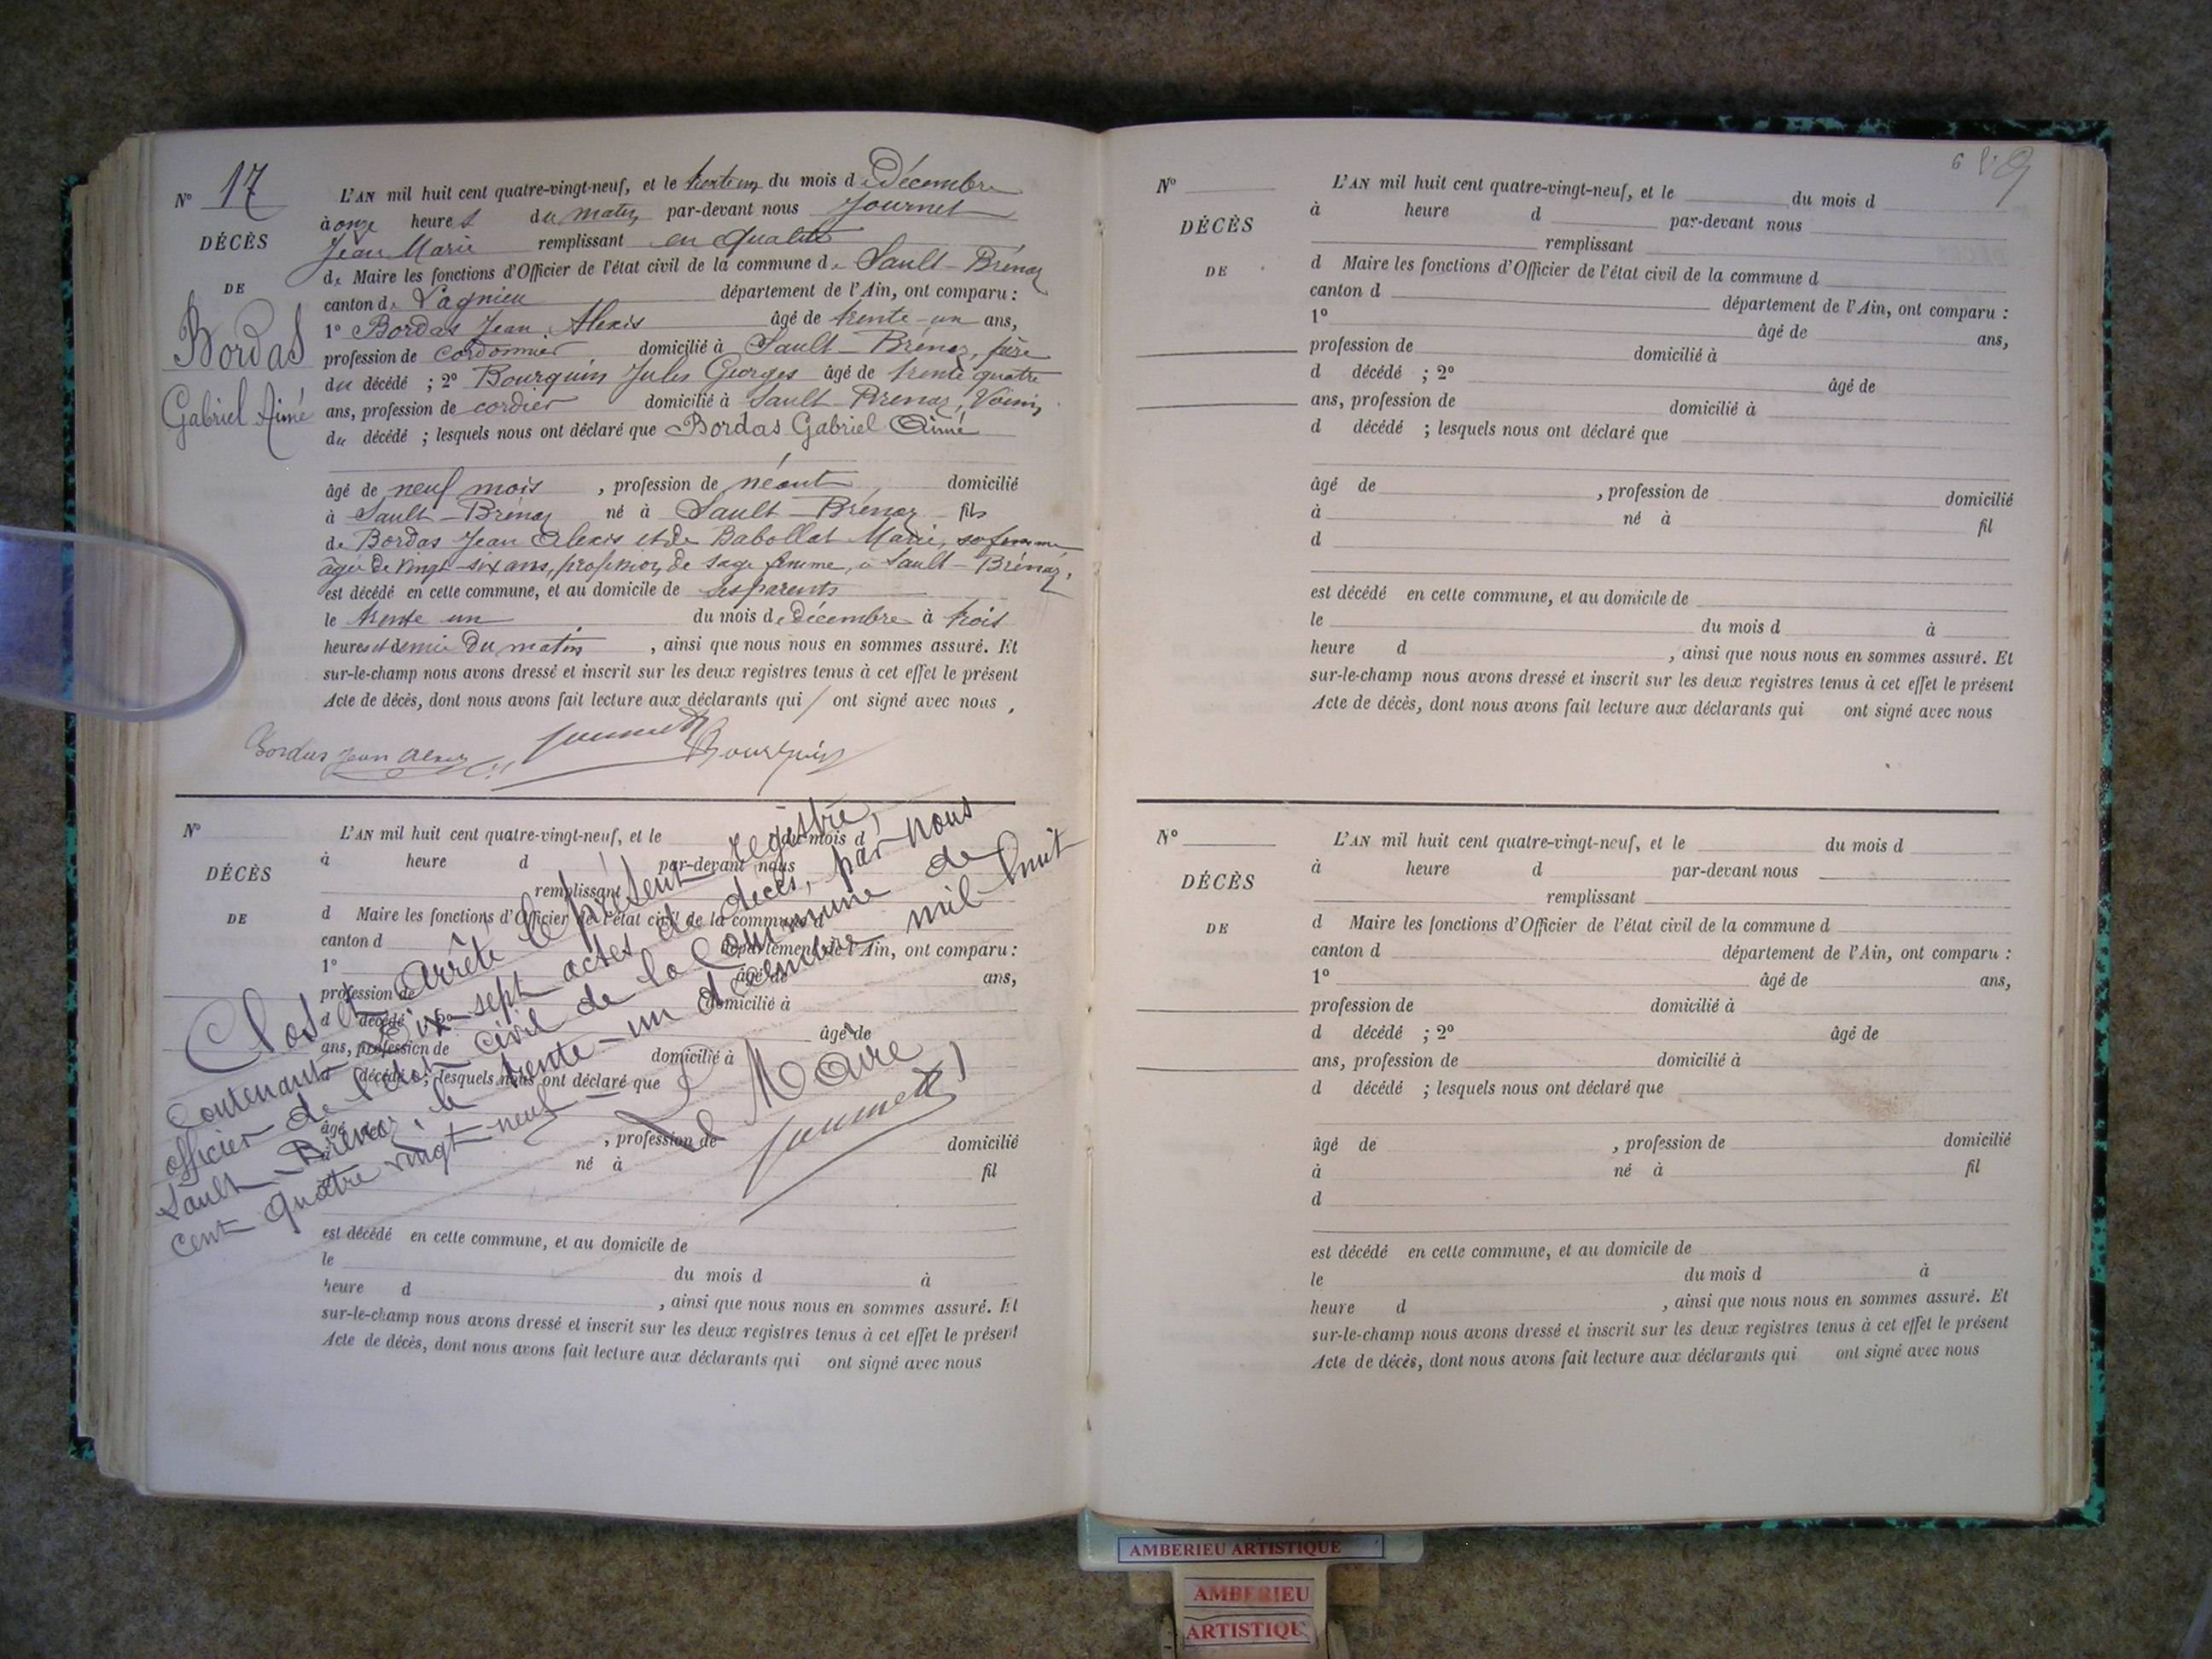 N° 17
DÉCÈS
DE
Bordas
Gabriel Aimé
L'AN mil huit cent quatre-vingt-neuf, et le trente un du mois de Décembre
à onze heures du matin par-devant nous Journet
Jean Marie remplissant en qualité
de Maire les fonctions d'Officier de l'état civil de la commune de Sault-Brénaz
canton de Lagnieu département de l'Ain, ont comparu :
1° Bordas Jean Alexis âgé de trente-un ans,
profession de cordonnier domicilié à Sault-Brénaz, père
du décédé ; 2° Bourquin Jules Georges âgé de trente quatre
ans, profession de cordier domicilié à Sault-Brénaz, Voisin
du décédé ; lesquels nous ont déclaré que Bordas Gabriel Aimé
âgé de neuf mois , profession de néant, domicilié
à Sault-Brénaz né à Sault-Brénaz fils
de Bordas Jean Alexis et de Babollat Marie, sa femme
âgée de vingt-six ans, profession de sage femme, à Sault-Brénaz,
est décédé en cette commune, et au domicile de ses parents
le trente un du mois de Décembre à trois
heures et demie du matin , ainsi que nous nous en sommes assuré. Et
sur-le-champ nous avons dressé et inscrit sur les deux registres tenus à cet effet le présent
Acte de décès, dont nous avons fait lecture aux déclarants qui / ont signé avec nous.
Bordas Jean Alexis Journet Bourquin
N°
DÉCÈS
DE
L'AN mil huit cent quatre-vingt-neuf, et le du mois d
à heure d par-devant nous
remplissant
d Maire les fonctions d'Officier de l'état civil de la commune d
canton d département de l'Ain, ont comparu :
1° âgé de ans,
profession de domicilié à
d décédé ; 2° âgé de
ans, profession de domicilié à
d décédé ; lesquels nous ont déclaré que
âgé de , profession de domicilié
à né à fil
d
est décédé en cette commune, et au domicile de
le du mois d à
heure d , ainsi que nous nous en sommes assuré. Et
sur-le-champ nous avons dressé et inscrit sur les deux registres tenus à cet effet le présent
Acte de décès, dont nous avons fait lecture aux déclarants qui ont signé avec nous
Clos et arrêté le présent registre,
Contenant Dix-sept actes de décès, par nous
officier de l'état civil de la Commune de
Sault-Brénaz, le trente-un décembre mil huit
cent quatre vingt-neuf
Le Maire
Journet
N°
DÉCÈS
DE
L'AN mil huit cent quatre-vingt-neuf, et le du mois d
à heure d par-devant nous
remplissant
d Maire les fonctions d'Officier de l'état civil de la commune d
canton d département de l'Ain, ont comparu :
1° âgé de ans,
profession de domicilié à
d décédé ; 2° âgé de
ans, profession de domicilié à
d décédé ; lesquels nous ont déclaré que
âgé de , profession de domicilié
à né à fil
d
est décédé en cette commune, et au domicile de
le du mois d à
heure d , ainsi que nous nous en sommes assuré. Et
sur-le-champ nous avons dressé et inscrit sur les deux registres tenus à cet effet le présent
Acte de décès, dont nous avons fait lecture aux déclarants qui ont signé avec nous
N°
DÉCÈS
DE
L'AN mil huit cent quatre-vingt-neuf, et le du mois d
à heure d par-devant nous
remplissant
d Maire les fonctions d'Officier de l'état civil de la commune d
canton d département de l'Ain, ont comparu :
1° âgé de ans,
profession de domicilié à
d décédé ; 2° âgé de
ans, profession de domicilié à
d décédé ; lesquels nous ont déclaré que
âgé de , profession de domicilié
à né à fil
d
est décédé en cette commune, et au domicile de
le du mois d à
heure d , ainsi que nous nous en sommes assuré. Et
sur-le-champ nous avons dressé et inscrit sur les deux registres tenus à cet effet le présent
Acte de décès, dont nous avons fait lecture aux déclarants qui ont signé avec nous
AMBERIEU ARTISTIQUE
AMBERIEU
ARTISTIQU